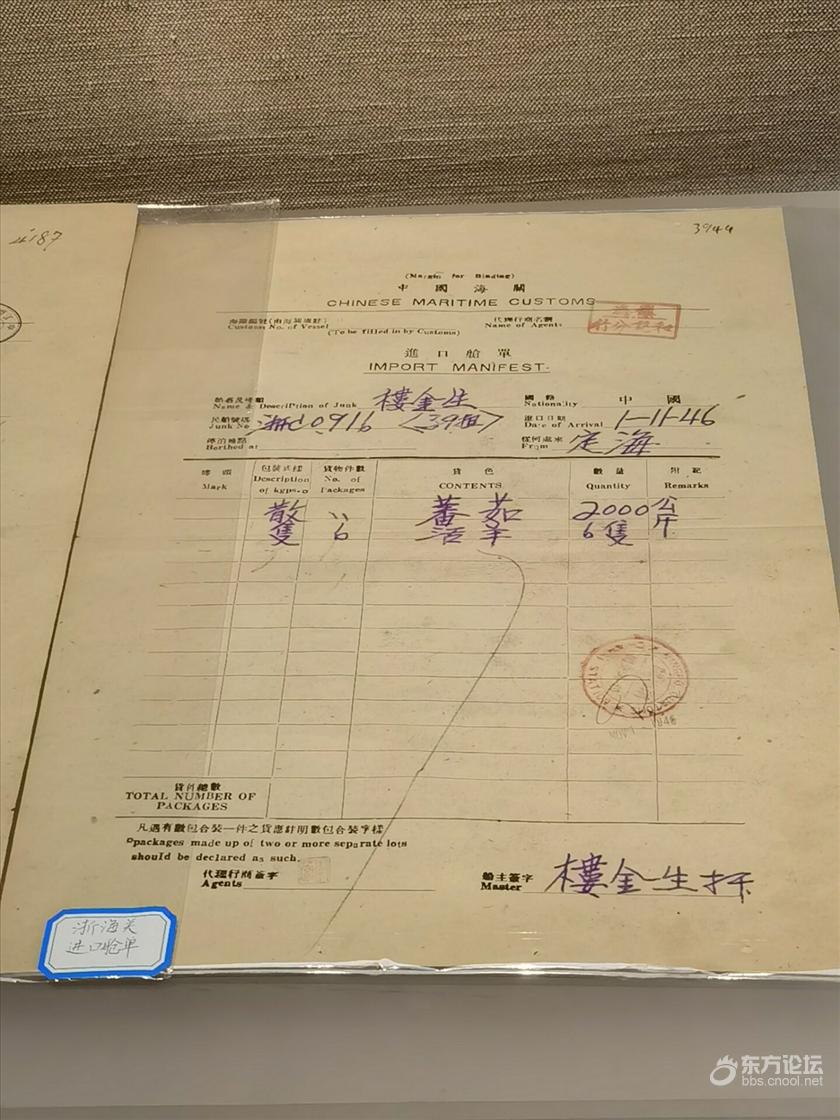 4187
3944
(Margin for Binding)
中國海關
CHINESE MARITIME CUSTOMS
代理行商名稱
Customs No. of Vessel (To be filled in by Customs) Name of Agents
進口艙單
IMPORT MANIFEST.
國籍
Name & Description of Junk 樓金生 Nationality 中國
民船號碼 進口日期
Junk No. 浙C0916 Date of Arrival 1-11-46
停泊地點 從何處來
Berthed at From 定海
嘜頭 包裝式樣 貨物件數 貨色 數量 附記
Mark Description of kgps. No. of Packages CONTENTS Quantity Remarks
散 〃 蕃茄 2000 公斤
隻 6 活羊 6隻
貨件總數
TOTAL NUMBER OF PACKAGES
凡遇有數包合裝一件之貨應註明數包合裝字樣
packages made up of two or more separate lots
should be declared as such.
代理行商簽字 船主簽字
Agents Master 樓金生
浙海关
进口舱单
东方论坛
bbs.cnool.net